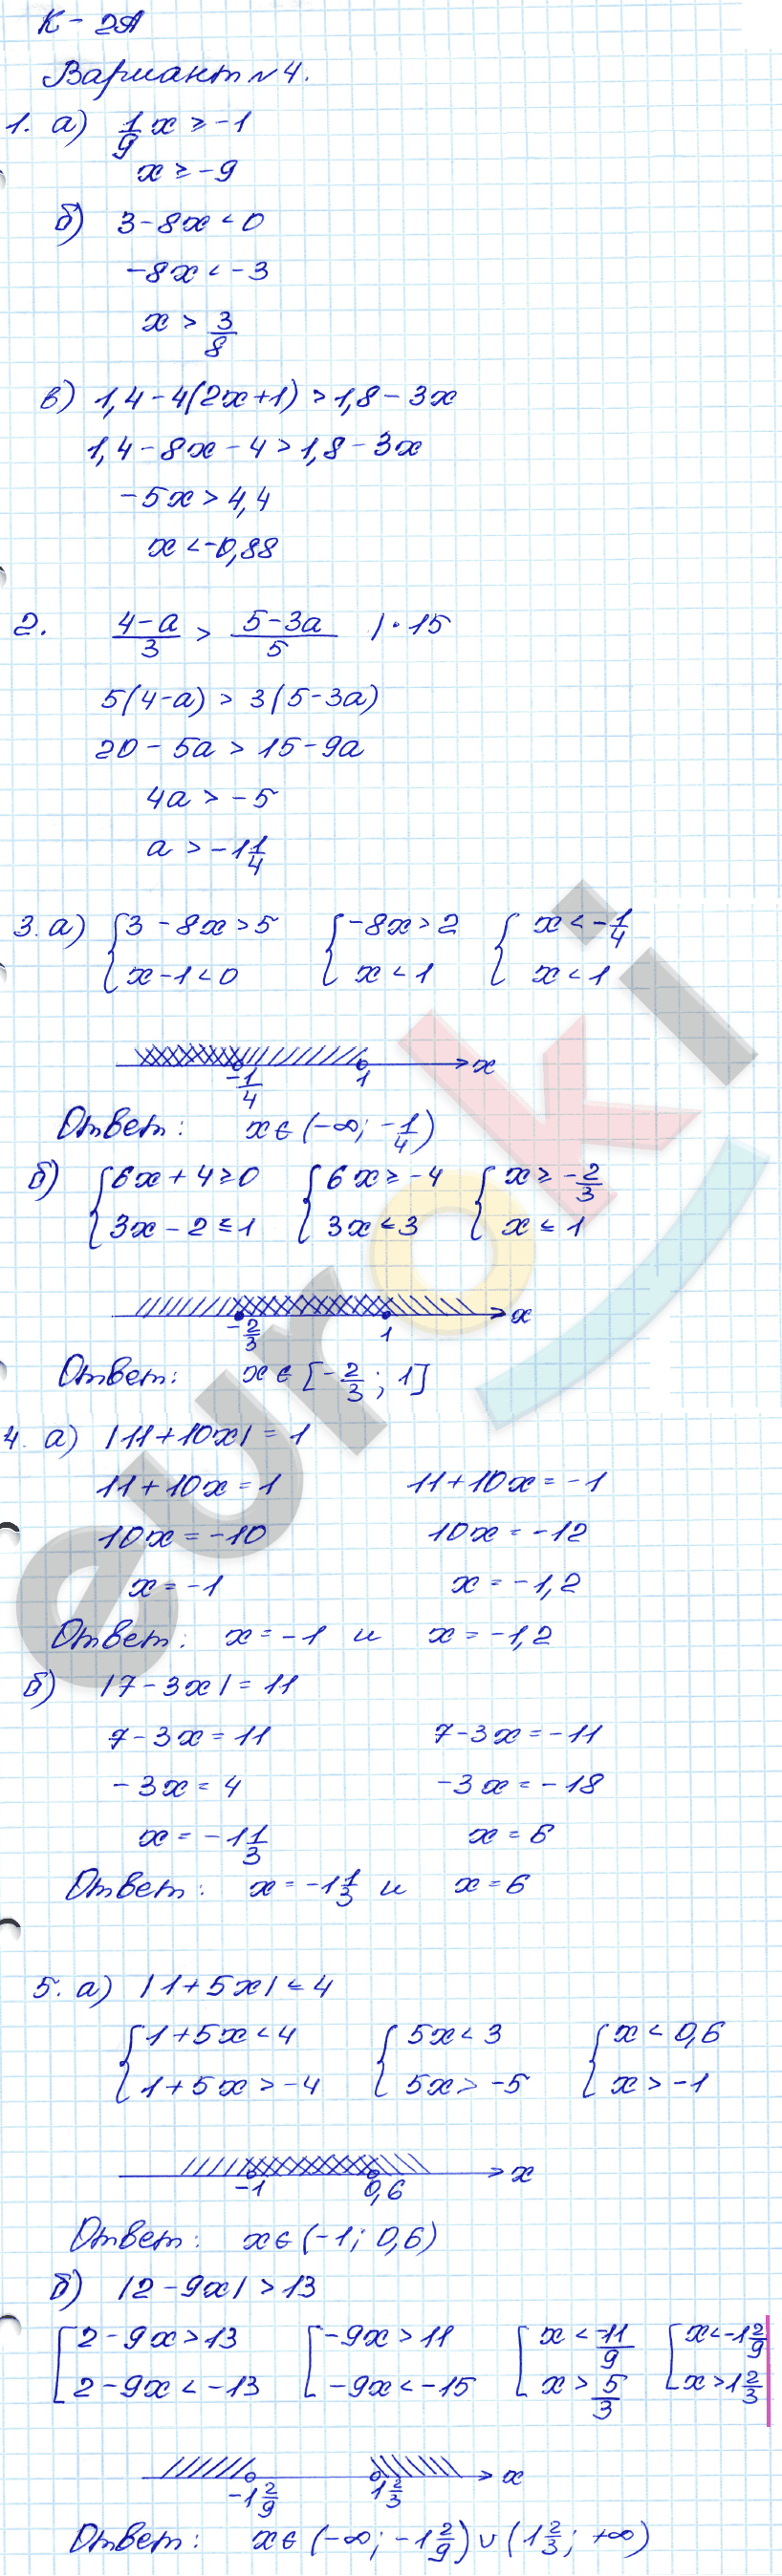 К - 2А
Вариант №4.
1. а) 1/9 x ≥ -1
x ≥ -9
б) 3 - 8x < 0
-8x < -3
x > 3/8
в) 1,4 - 4(2x+1) > 1,8 - 3x
1,4 - 8x - 4 > 1,8 - 3x
-5x > 4,4
x < -0,88
2. (4-a)/3 > (5-3a)/5 | · 15
5(4-a) > 3(5-3a)
20 - 5a > 15 - 9a
4a > -5
a > -1 1/4
3. а) { 3 - 8x > 5 { -8x > 2 { x < -1/4
x - 1 < 0 x < 1 x < 1
-1/4 1 x
Ответ: x ∈ (-∞; -1/4)
б) { 6x + 4 ≥ 0 { 6x ≥ -4 { x ≥ -2/3
3x - 2 ≤ 1 3x ≤ 3 x ≤ 1
-2/3 1 x
Ответ: x ∈ [-2/3; 1]
4. а) |11 + 10x| = 1
11 + 10x = 1 11 + 10x = -1
10x = -10 10x = -12
x = -1 x = -1,2
Ответ: x = -1 и x = -1,2
б) |7 - 3x| = 11
7 - 3x = 11 7 - 3x = -11
-3x = 4 -3x = -18
x = -1 1/3 x = 6
Ответ: x = -1 1/3 и x = 6
5. а) |1 + 5x| < 4
{ 1 + 5x < 4 { 5x < 3 { x < 0,6
1 + 5x > -4 5x > -5 x > -1
-1 0,6 x
Ответ: x ∈ (-1; 0,6)
б) |2 - 9x| > 13
[ 2 - 9x > 13 [ -9x > 11 [ x < -11/9 [ x < -1 2/9
2 - 9x < -13 -9x < -15 x > 5/3 x > 1 2/3
-1 2/9 1 2/3 x
Ответ: x ∈ (-∞; -1 2/9) ∪ (1 2/3; +∞)
euroki